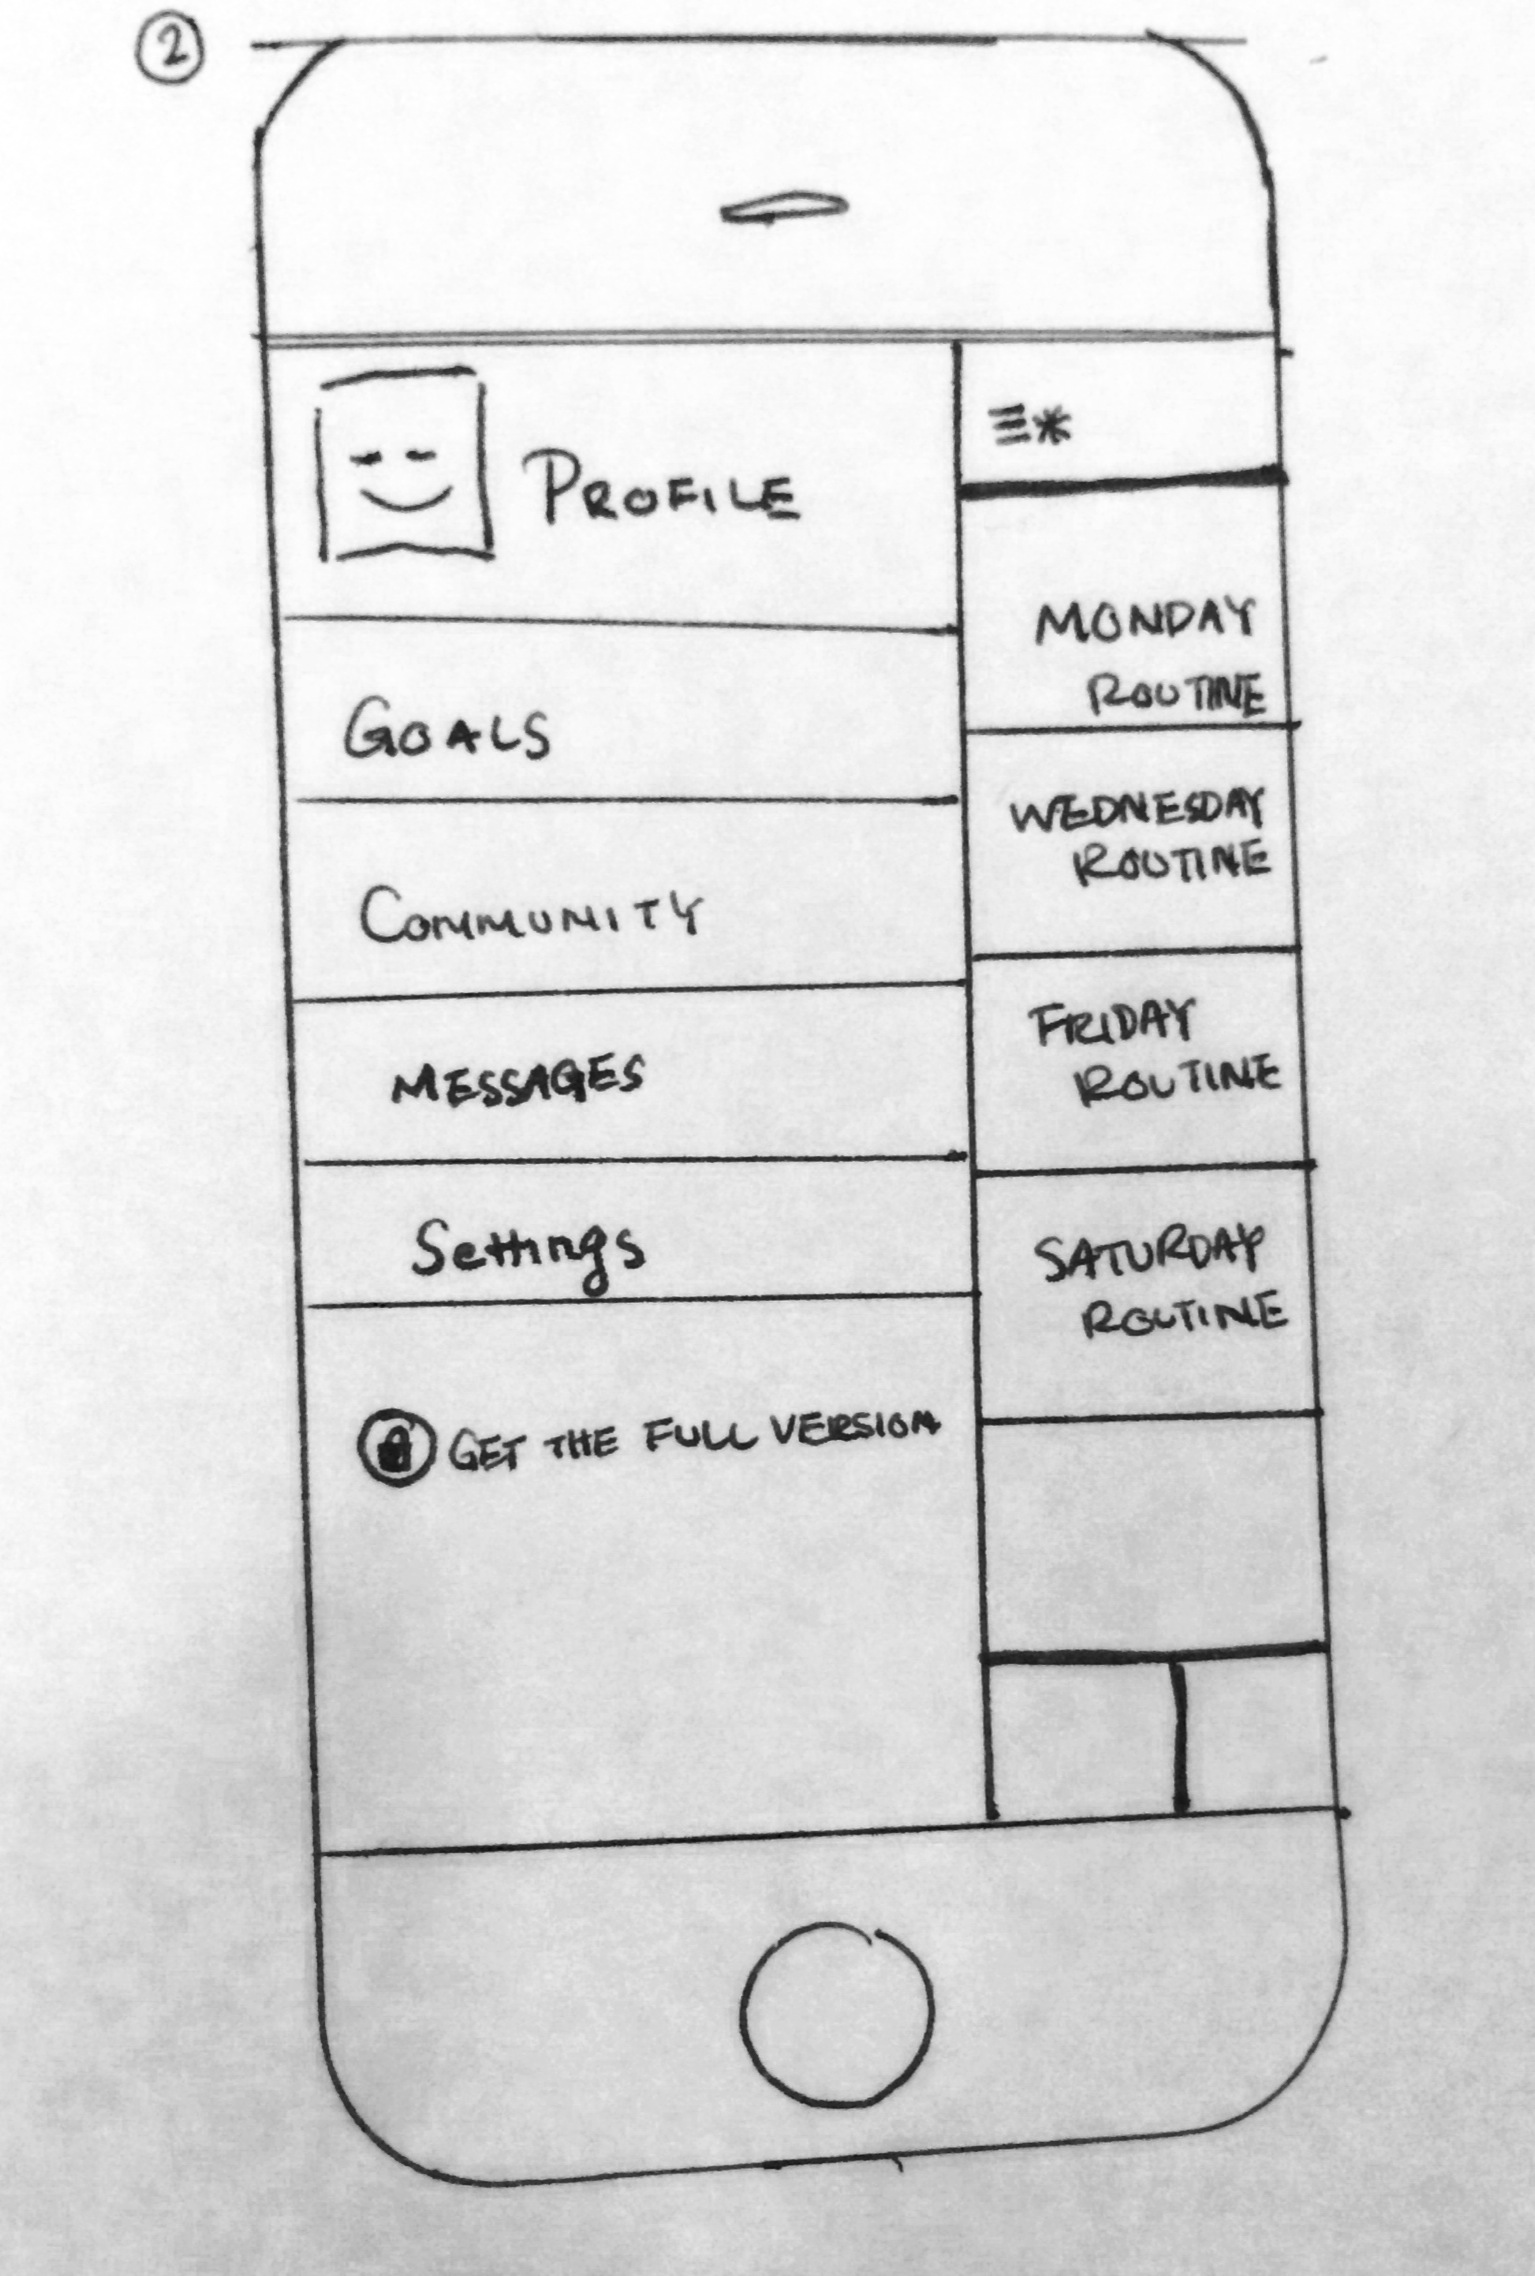 2
PROFILE
GOALS
COMMUNITY
MESSAGES
Settings
GET THE FULL VERSION
*
MONDAY
ROUTINE
WEDNESDAY
ROUTINE
FRIDAY
ROUTINE
SATURDAY
ROUTINE